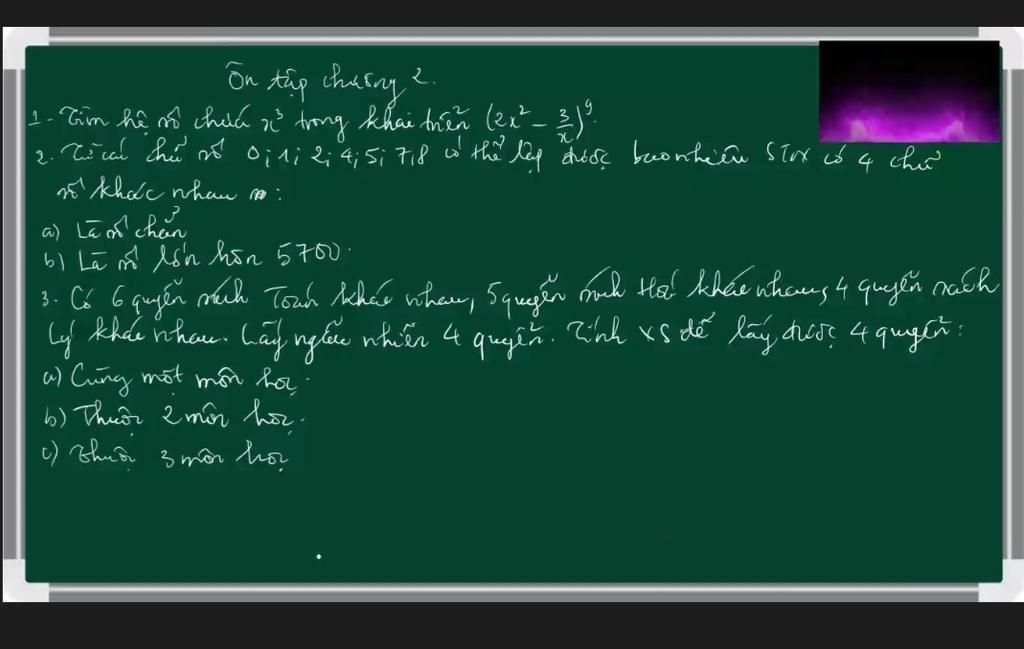 Ôn tập chương 2.
1- Tìm hệ số chứa x³ trong khai triển (2x² - 3/x)⁹.
2. Từ các chữ số 0; 1; 2; 4; 5; 7; 8 có thể lập được bao nhiêu STN có 4 chữ
số khác nhau :
a) Là số chẵn
b) Là số lớn hơn 5700.
3. Có 6 quyển sách Toán khác nhau, 5 quyển sách Hoá khác nhau, 4 quyển sách
Lý khác nhau. Lấy ngẫu nhiên 4 quyển. Tính XS để lấy được 4 quyển:
a) Cùng một môn học.
b) Thuộc 2 môn học.
c) Thuộc 3 môn học